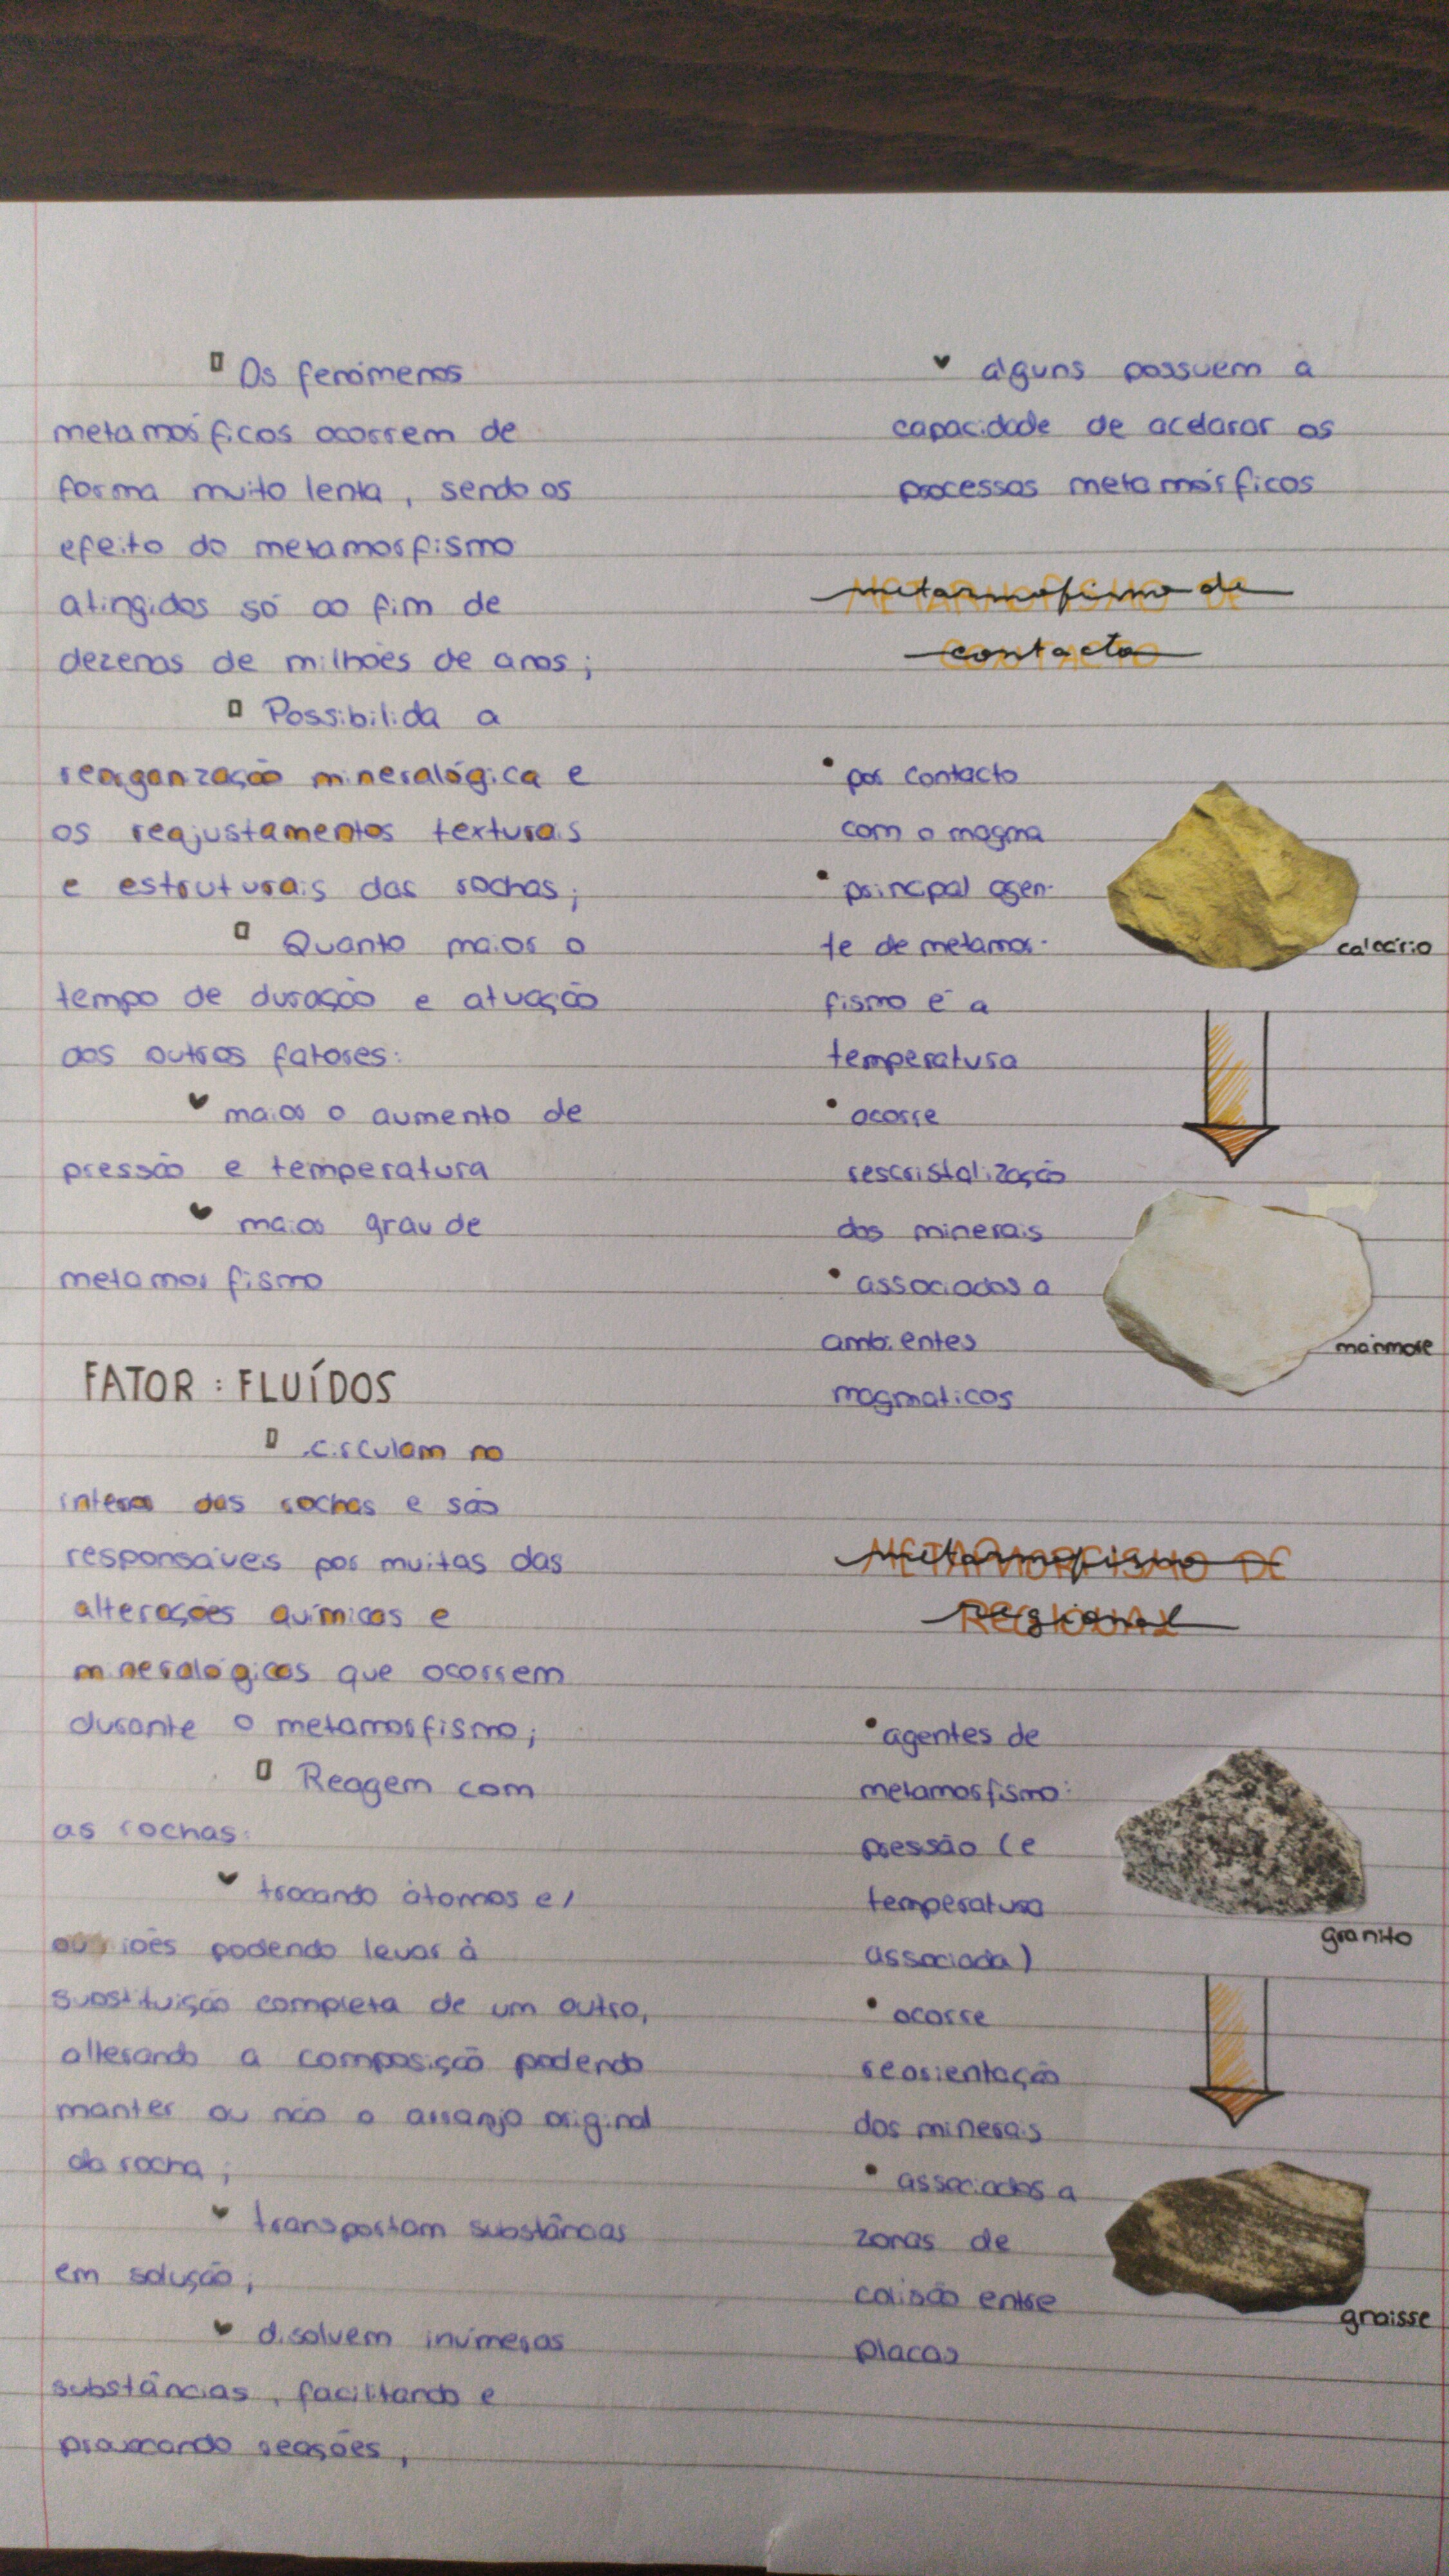 Os fenómenos
metamórficos ocorrem de
forma muito lenta, sendo os
efeito do metamorfismo
atingidos só ao fim de
dezenas de milhões de anos;
Possibilida a
reorganização mineralógica e
os reajustamentos texturais
e estruturais das rochas;
Quanto maior o
tempo de duração e atuação
dos outros fatores:
maior o aumento de
pressão e temperatura
maior grau de
metamorfismo
FATOR: FLUÍDOS
circulam no
interior das rochas e são
responsáveis por muitas das
alterações químicas e
mineralógicas que ocorrem
durante o metamorfismo;
Reagem com
as rochas:
trocando átomos e/
ou iões podendo levar à
substituição completa de um outro,
alterando a composição podendo
manter ou não o arranjo original
da rocha;
transportam substâncias
em solução;
disolvem inúmeras
substâncias, facilitando e
provocando reações;
alguns possuem a
capacidade de acelarar os
processos metamórficos
METARMOFISMO DE
CONTACTO
metarmofismo de
contacto
por contacto
com o magma
principal agen-
te de metamor-
fismo é a
temperatura
ocorre
rescristalização
dos minerais
associados a
ambientes
magmaticos
calcário
mármore
METARMORFISMO DE
REGIONAL
metarmofismo
regional
agentes de
metamorfismo:
pressão (e
temperatura
associada)
ocorre
reorientação
dos minerais
associados a
zonas de
colisão entre
placas
granito
gnaisse